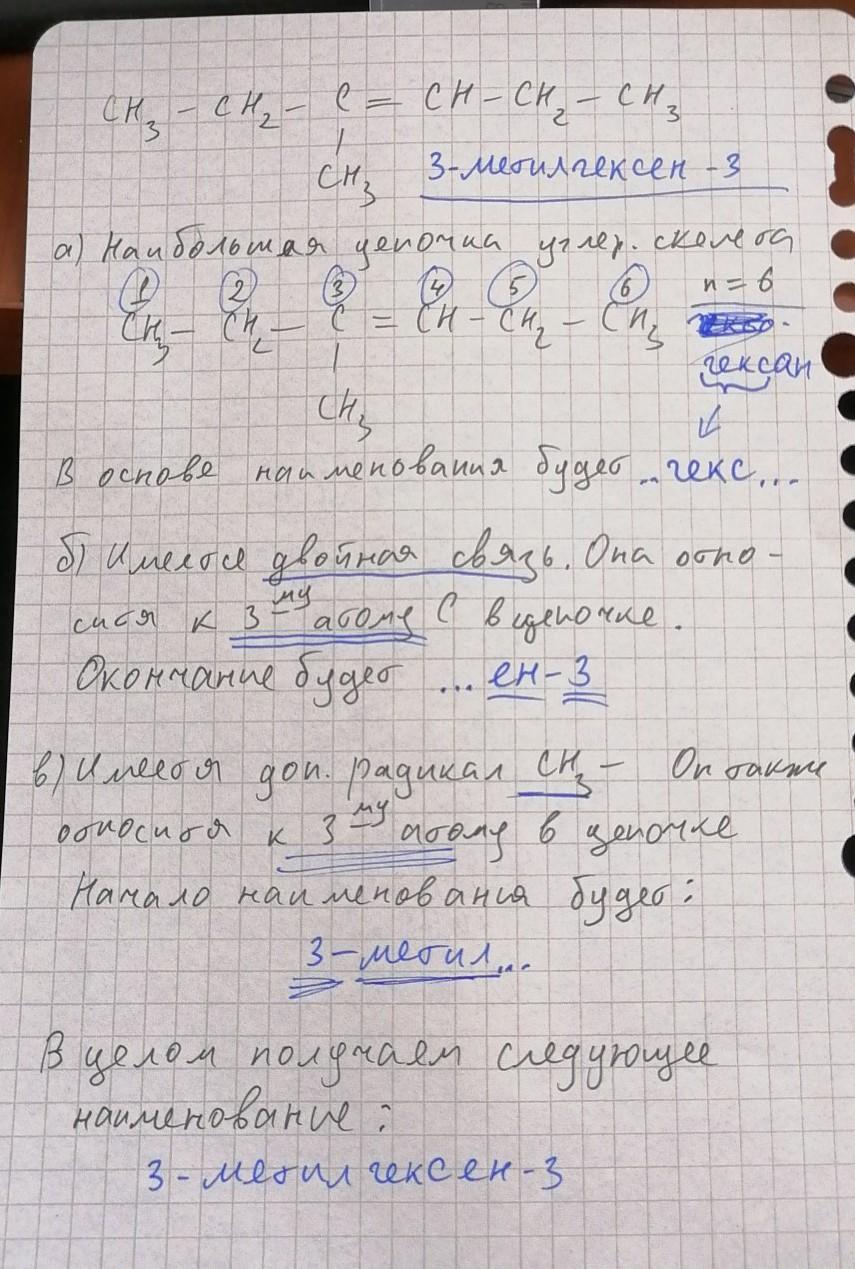 CH₃ – CH₂ – C = CH – CH₂ – CH₃
|
CH₃ 3-метилгексен-3
а) Наибольшая цепочка углер. скелета
1 2 3 4 5 6 n = 6
CH₃ – CH₂ – C = CH – CH₂ – CH₃
|
гексан
CH₃
В основе наименования будет ..гекс...
б) Имеется двойная связь. Она отно-
сится к 3му атому C в цепочке.
Окончание будет ...ен-3
в) Имеется доп. радикал CH₃ – Он также
относится к 3му атому в цепочке
Начало наименования будет:
3-метил...
В целом получаем следующее
наименование:
3-метилгексен-3